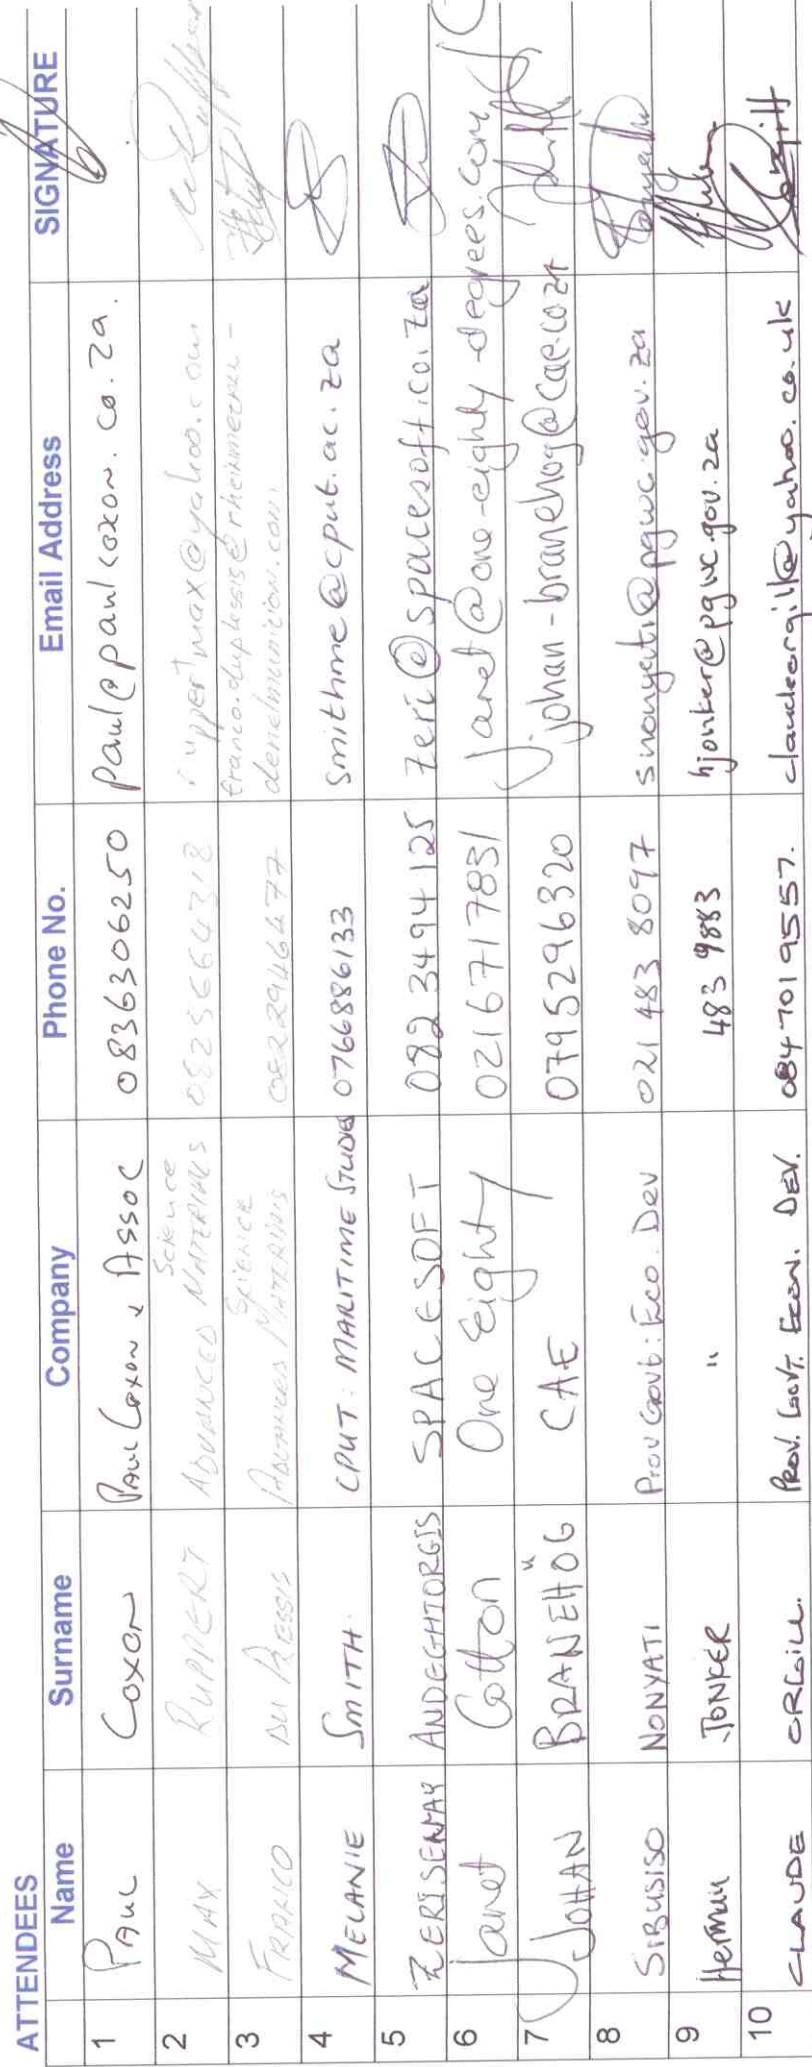 ATTENDEES
Name Surname Company Phone No. Email Address SIGNATURE
1 PAUL COXON PAUL COXON & ASSOC 0836306250 paul@paulcoxon.co.za.
2 MAX RUPPERT ADVANCED MATERIALS Science 0825664318 ruppertmax@yahoo.com
3 FRANCO DU PLESSIS ADVANCED MATERIALS Science 0822946477 franco.duplessis@rheinmetall-
denelmunition.com.
4 MELANIE SMITH. CPUT: MARITIME STUDIES 0766886133 smithme@cput.ac.za
5 ZERISENAY ANDEGHIORGIS SPACESOFT 082 3494 125 zeri@spacesoft.co.za
6 Janet Cotton One Eighty 0216717831 janet@one-eighty-degrees.com
7 JOHAN BRANEHÖG CAE 0795296320 johan-branehog@cae.co.za
8 SIBUSISO NONYATI Prov Govt: Eco. Dev 021 483 8097 snonyati@pgwc.gov.za
9 Herman JONKER " 483 9883 hjonker@pgwc.gov.za
10 CLAUDE ORGILL. PROV. GOVT. ECON. DEV. 084 701 9557. claudeorgill@yahoo.co.uk